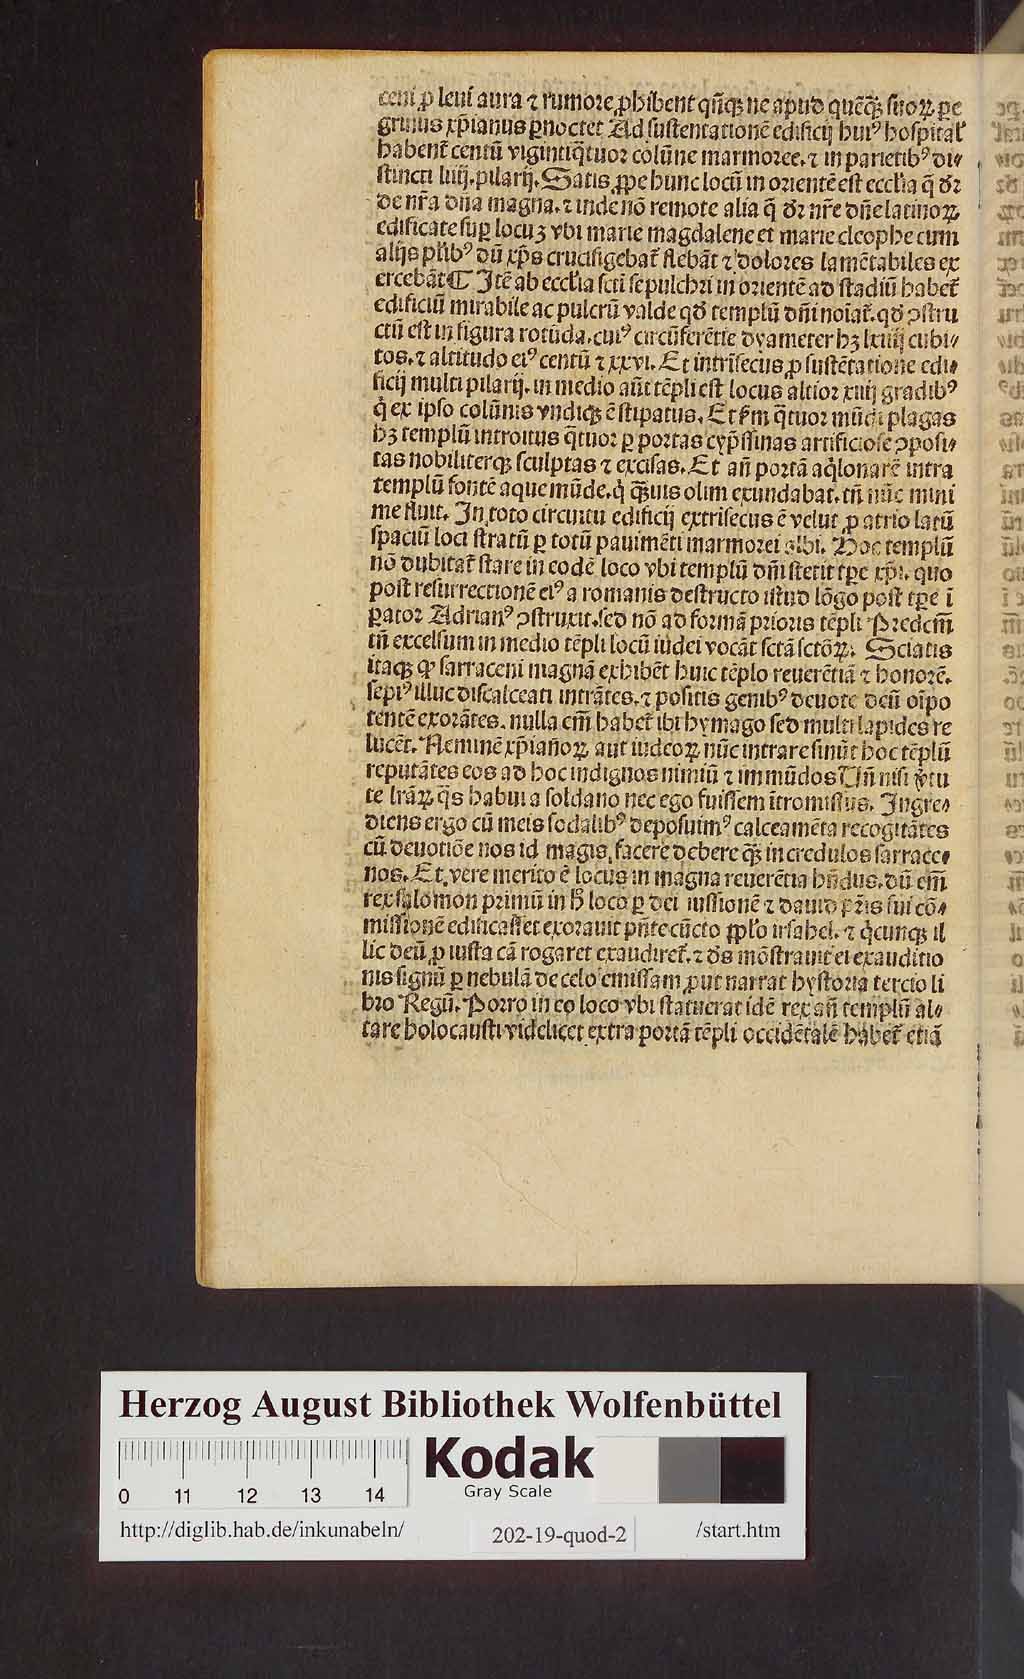 ceni ꝓ leui aura ⁊ rumore ꝓhibent qñqꝫ ne apud quēqꝫ̄ suoꝝ ꝑe
grinus xp̄ianus ꝑnoctet Ad sustentationē edificij huiꝰ hospital̕
habent̄ centū vigintiq̄tuor colūne marmoree. ⁊ in parietibꝰ di⸗
stincti liiij. pilarij. Satis ꝓpe hunc locū in orientē est ecclīa q̄ dr̄
de nr̄a dn̄a magna. ⁊ inde nō remote alia q̄ dr̄ nr̄e dn̄e latinoꝝ
edificate suꝑ locuꝫ vbi marie magdalene et marie cleophe cum
alijs pl̄ibꝰ dū xp̄s crucifigebat̄ flebāt ⁊ dolores lamētabiles ex
ercebāt ¶ Itē ab eccl̄ia scti sepulchri in orientē ad stadiū habet̄
edificiū mirabile ac pulcrū valde qd̄ templū dn̄i noiat̄. qd̄ ↄstru
ctū est in figura rotūda. cuiꝰ circūferētie dyameter hꝫ lxiiij cubi⸗
tos. ⁊ altitudo eiꝰ centū ⁊ xxvi. Et intrīsecus ꝓ sustētatione edi⸗
ficij multi pilarij. in medio aūt tēpli est locus altior xiiij gradibꝰ
q̇ ex ipso colūnis vndiqꝫ ē stipatus. Et sm̄ q̄tuor mūdi plagas
hꝫ templū introitus q̄tuor ꝑ portas cyp̄ssinas artificiose ↄposi⸗
tas nobiliterqꝫ sculptas ⁊ excisas. Et añ portā aq̇lonarē intra
templū fontē aque mūde. q̇ qꝫ̄uis olim exundabat. tn̄ nūc mini
me fluit. In toto circuitu edificij extrīsecus ē velut ꝓ atrio latū
spaciū loci stratū ꝑ totū pauimēti marmorei albi. Hoc templū
nō dubitat̄ stare in eodē loco vbi templū dn̄i stetit tꝑe xp̄i. quo
post resurrectionē eiꝰ a romanis destructo istud lōgo post tꝑe ī
ꝑator Adrianꝰ ↄstruxit. sed nō ad formā prioris tēpli Predcm̄
tn̄ excelsum in medio tēpli locū iudei vocāt sctā sctōꝝ. Sciatis
itaqꝫ ꝙ sarraceni magnā exhibēt huic tēplo reuerētiā ⁊ honorē.
sepiꝰ illuc discalceati intrātes. ⁊ positis genibꝰ deuote deū oīpo
tentē exorātes. nulla em̄ habet̄ ibi hymago sed multi lapides re
lucēt. Neminē xp̄ianoꝝ aut iudeoꝝ nūc intrare sinūt hoc tēplū
reputātes eos ad hoc indignos nimiū ⁊ immūdos Vn̄ nisi v̓tu
te lr̄aꝝ q̄s habui a soldano nec ego fuissem ītromissus. Ingre⸗
diens ergo cū meis sodalibꝰ deposuimꝰ calceamēta recogitātes
cū deuotiōe nos id magis facere debere qꝫ̄ incredulos sarrace⸗
nos. Et vere merito ē locus in magna reuerētia hn̄dus. dū em̄
rex salomon primū in h̄ loco ꝑ dei iussionē ⁊ dauid pr̄is sui cō⸗
missionē edificasset exorauit pn̄te cūcto ppl̕o irl̕ahel. ⁊ q̇cunqꝫ il
lic deū ꝓ iusta cā rogaret exaudiret̄. ⁊ ds̄ mōstrauit ei exauditio
nis signū ꝑ nebulā de celo emissam ꝓut narrat hystoria tercio li
bro Regū. Porro in eo loco vbi statuerat idē rex añ templū al⸗
tare holocausti videlicet extra portā tēpli occidētalē habet̄ etiā
Herzog August Bibliothek Wolfenbüttel
Kodak
Gray Scale
0 11 12 13 14
http://diglib.hab.de/inkunabeln/ 202-19-quod-2 /start.htm